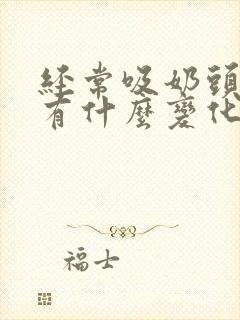 經常吸奶頭
有什麼變化
福士